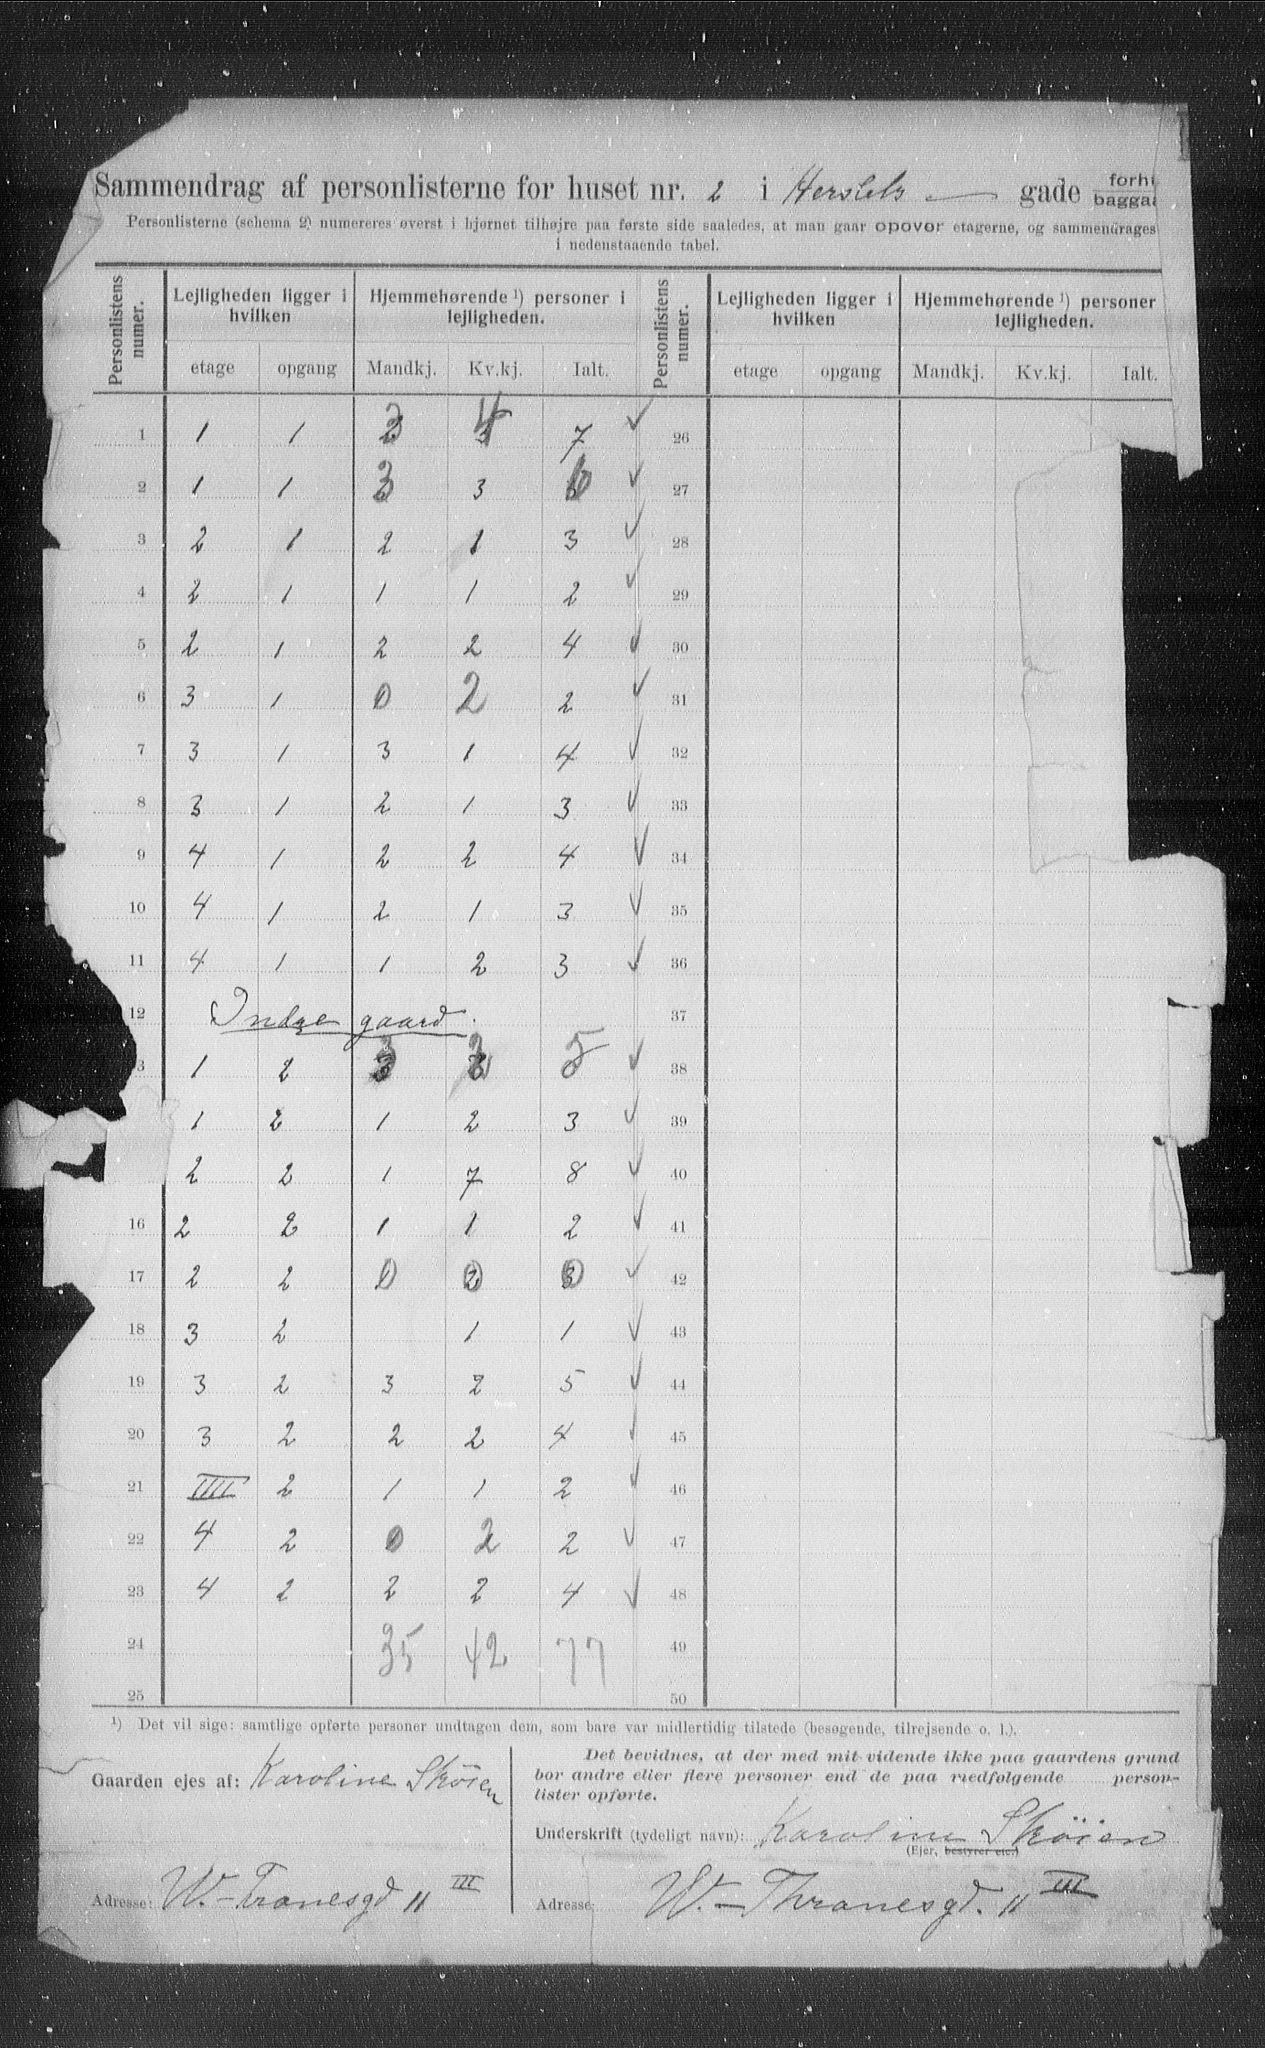 Sammendrag af personlisterne for huset nr. 2 i Herslebs gade forhu
baggaa
Personlisterne (schema 2) numereres øverst i hjørnet tilhøjre paa første side saaledes, at man gaar opover etagerne, og sammendrages
i nedenstaaende tabel.
Personlistens numer. Lejligheden ligger i hvilken Hjemmehørende ¹) personer i lejligheden. Personlistens numer. Lejligheden ligger i hvilken Hjemmehørende ¹) personer lejligheden.
etage opgang Mandkj. Kv.kj. Ialt. etage opgang Mandkj. Kv.kj. Ialt.
1 1 1 3 4 7 ✓ 26
2 1 1 3 3 6 ✓ 27
3 2 1 2 1 3 ✓ 28
4 2 1 1 1 2 ✓ 29
5 2 1 2 2 4 ✓ 30
6 3 1 0 2 2 ✓ 31
7 3 1 3 1 4 ✓ 32
8 3 1 2 1 3 ✓ 33
9 4 1 2 2 4 ✓ 34
10 4 1 2 1 3 ✓ 35
11 4 1 1 2 3 ✓ 36
12 Indre gaard. 37
3 1 2 3 2 5 ✓ 38
1 2 1 2 3 ✓ 39
2 2 1 7 8 ✓ 40
16 2 2 1 1 2 ✓ 41
17 2 2 0 0 0 ✓ 42
18 3 2 1 1 ✓ 43
19 3 2 3 2 5 ✓ 44
20 3 2 2 2 4 ✓ 45
21 IIII 2 1 1 2 ✓ 46
22 4 2 0 2 2 ✓ 47
23 4 2 2 2 4 ✓ 48
24 35 42 77 49
25 50
¹) Det vil sige: samtlige opførte personer undtagen dem, som bare var midlertidig tilstede (besøgende, tilrejsende o. l.).
Gaarden ejes af: Karoline Sköien
Adresse: W. - Tranesgd 11 III
Det bevidnes, at der med mit vidende ikke paa gaardens grund
bor andre eller flere personer end de paa medfølgende person-
lister opførte.
Underskrift (tydeligt navn): Karoline Sköien
(Ejer, bestyrer etc.)
Adresse: W. - Thranesgd. 11 III